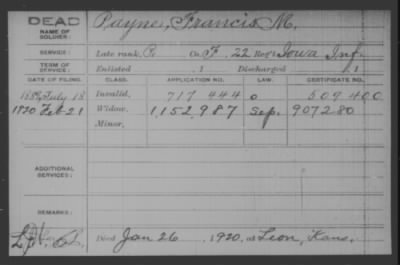 DEAD
NAME OF SOLDIER: Payne, Francis M.
SERVICE: Late rank, P. Co. F, 22 Reg't Iowa Inf.
TERM OF SERVICE: Enlisted , 1 Discharged , 1
DATE OF FILING. CLASS. APPLICATION NO. LAW. CERTIFICATE NO.
July 18 Invalid, 717 444 509 400
1920 Feb 21 Widow, 1,152,987 Sep. 907280
Minor,
ADDITIONAL SERVICES:
REMARKS:
Died Jan 26 , 1920, at Leon, Kans.